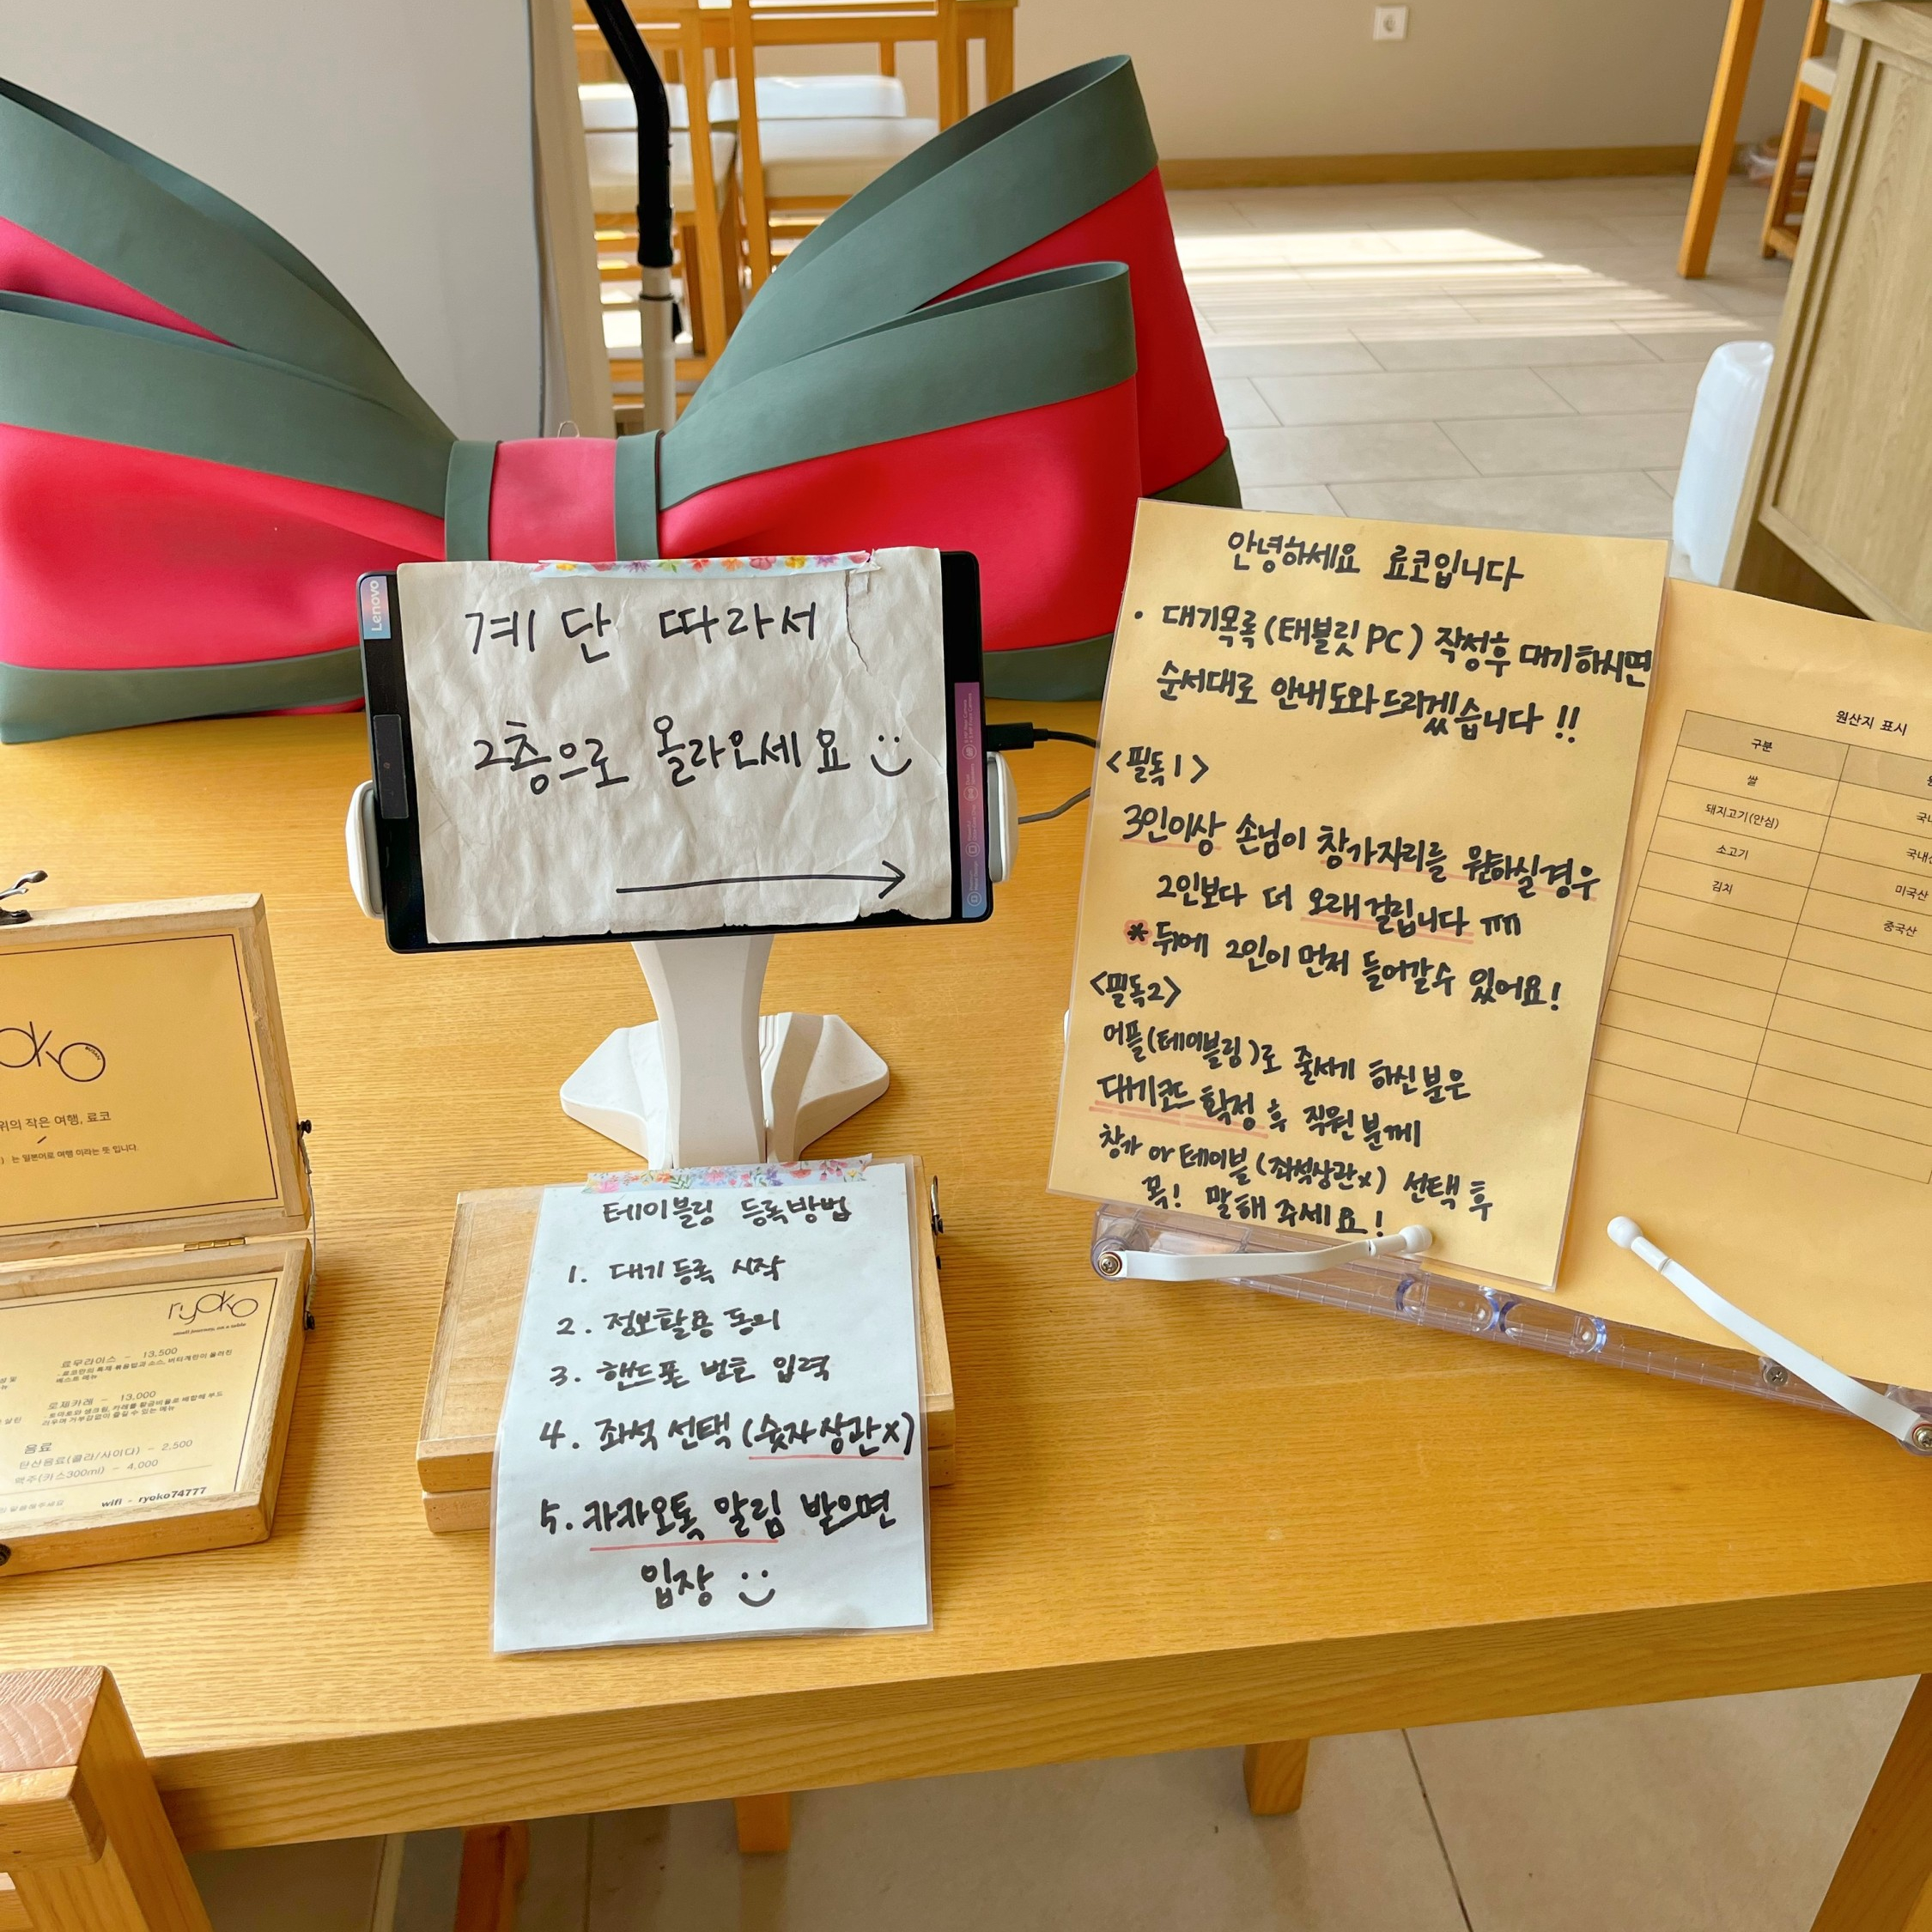 Lenovo
계단 따라서
2층으로 올라오세요
안녕하세요 료코입니다
• 대기목록(태블릿PC) 작성후 대기하시면
순서대로 안내도와드리겠습니다 !!
<필독1>
3인이상 손님이 창가자리를 원하실경우
2인보다 더 오래걸립니다 ㅠㅠ
* 뒤에 2인이 먼저 들어갈수 있어요!
<필독2>
어플(테이블링)로 줄서기 하신분은
대기코드 확정 후 직원분께
창가 or 테이블(좌석상관x) 선택 후
꼭! 말해 주세요!
원산지 표시
구분
쌀
돼지고기(안심)
국내산
소고기
미국산
김치
중국산
테이블링 등록방법
1. 대기등록 시작
2. 정보활용 동의
3. 핸드폰 번호 입력
4. 좌석 선택 (숫자상관x)
5. 카카오톡 알림 받으면
입장
위의 작은 여행, 료코
는 일본어로 여행 이라는 뜻 입니다
ryoko
small journey, on a table
료무라이스 - 13,500
베스트 메뉴
로제카레 - 13,000
음료
탄산음료(콜라/사이다) - 2,500
맥주(카스300ml) - 4,000
wifi - ryoko74777